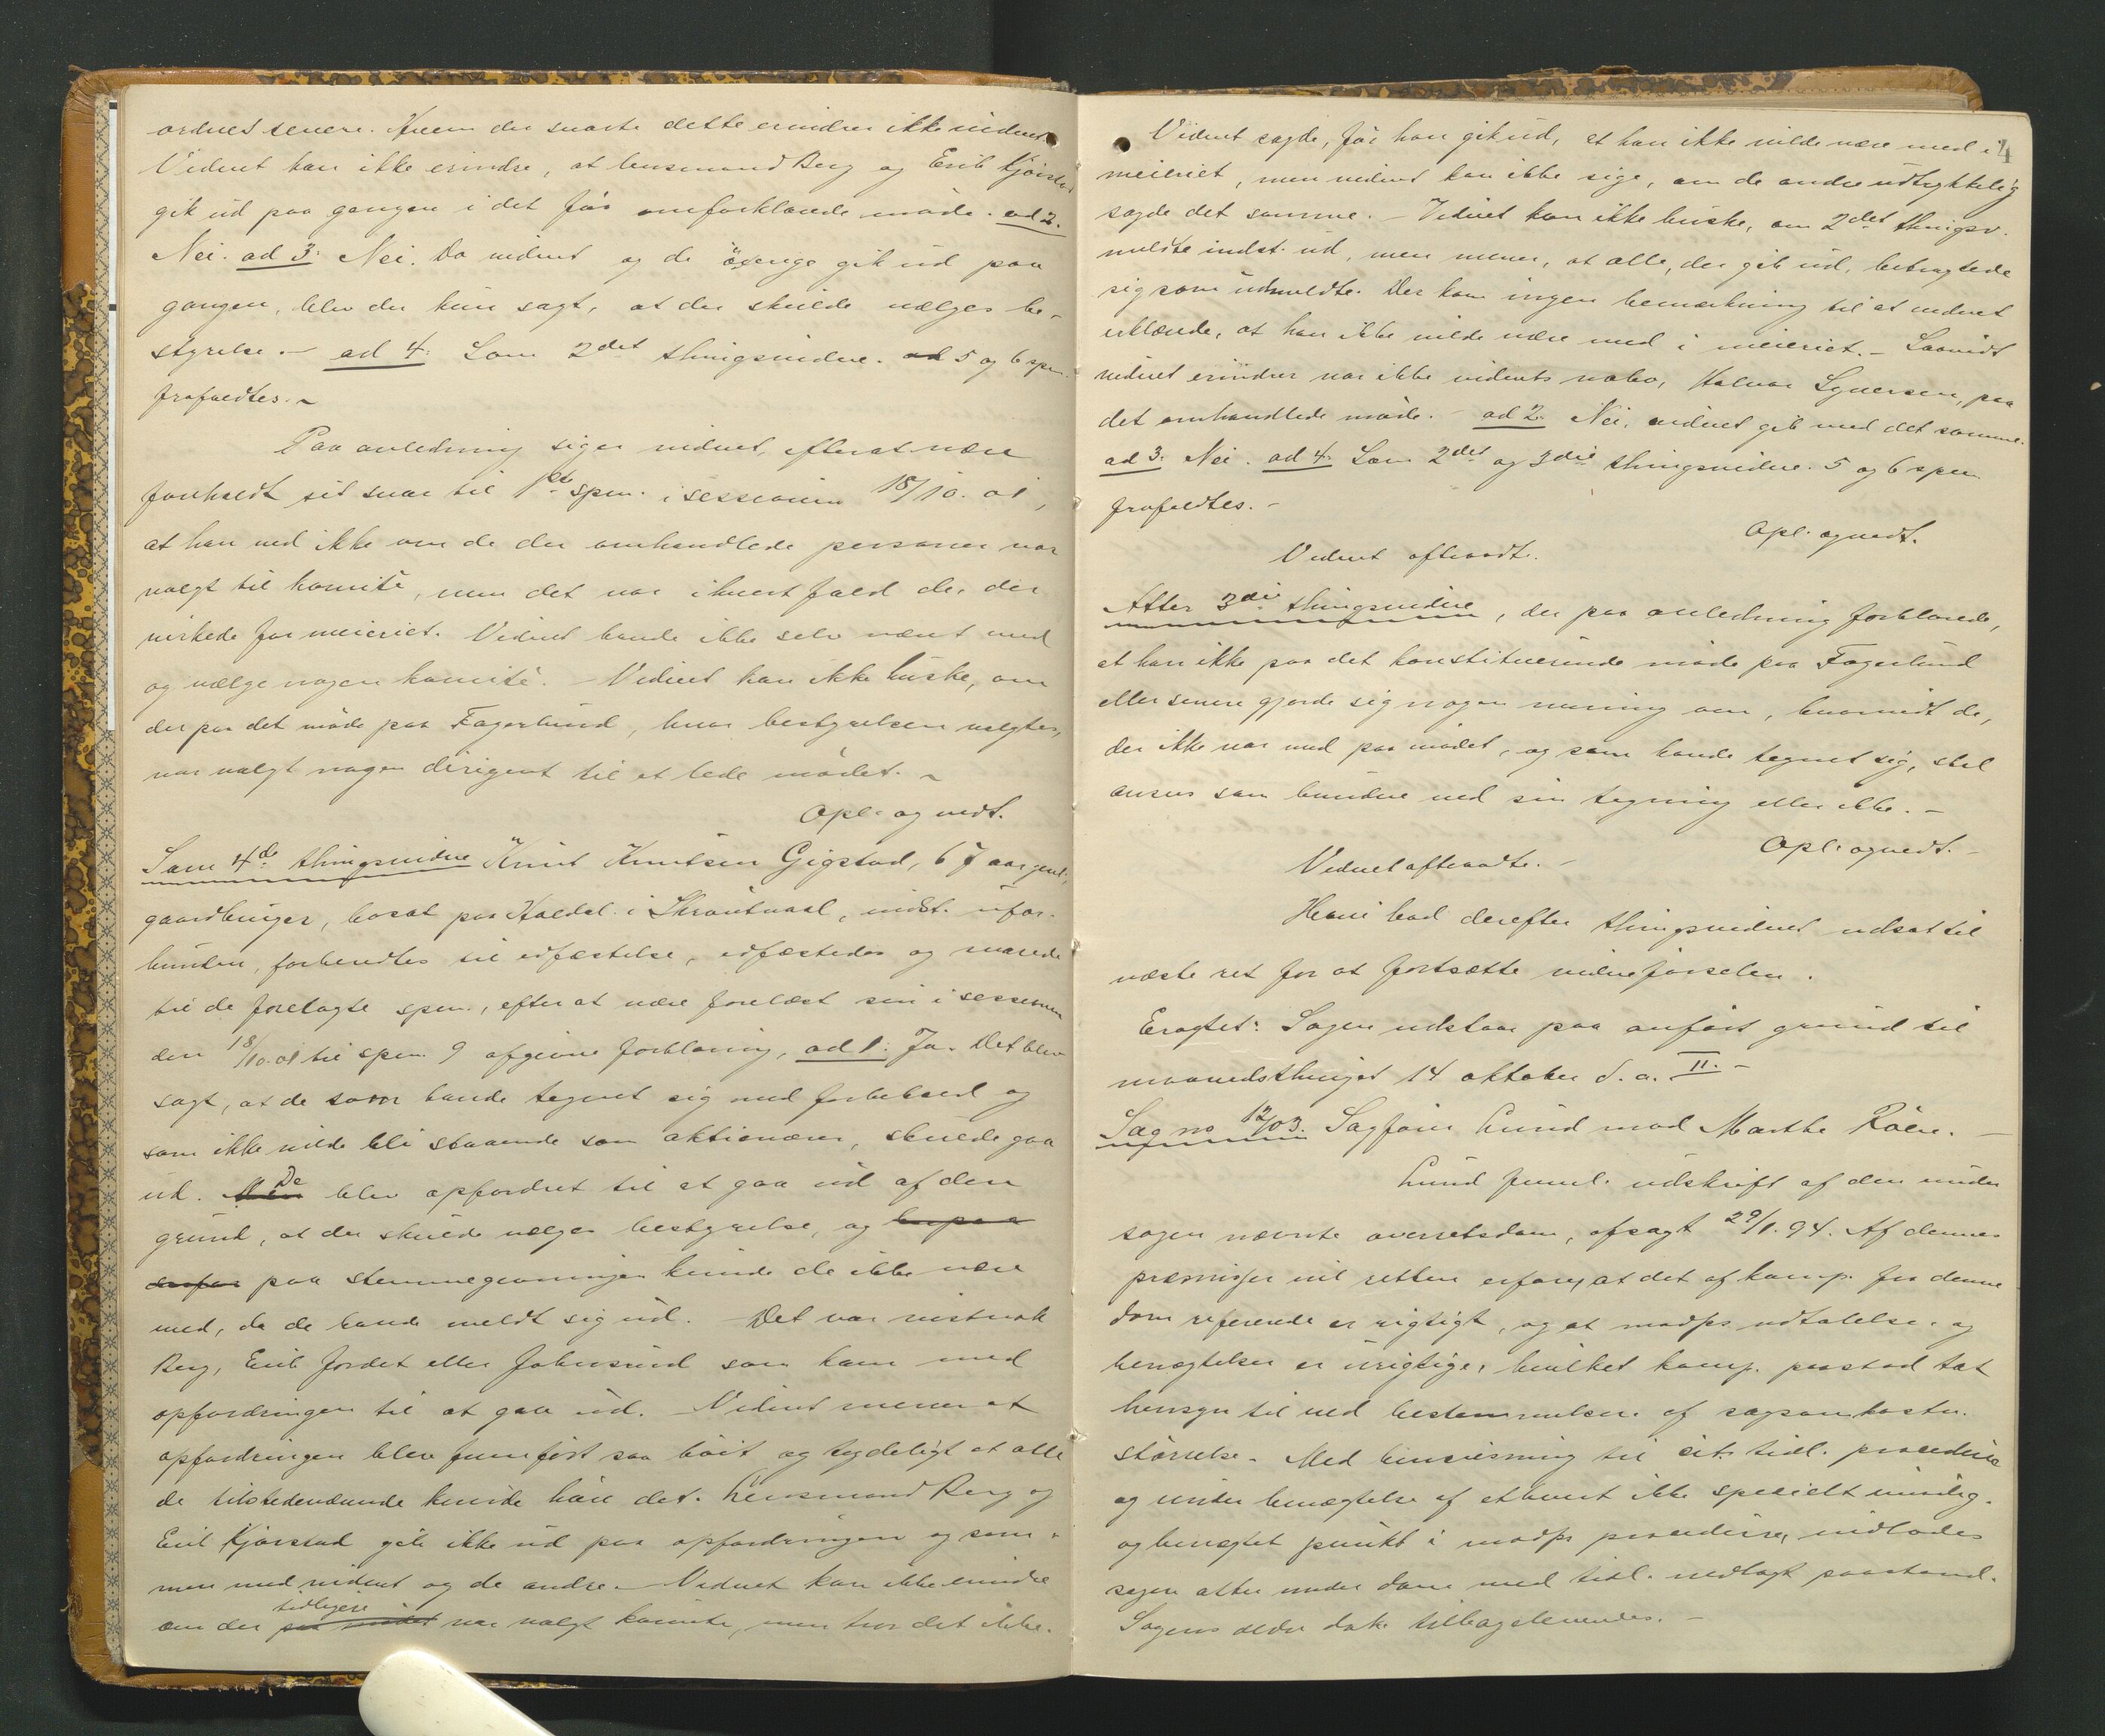 ordnet senere. Hvem der svarte dette erindrer ikke vidnet
Vidnet kan ikke erindre, at lensmand Berg og Erik Kjørstad
gik ud paa gangen i det før omforklarede møde. ad 2.
Nei. ad 3: Nei. Da vidnet og de øvrige gik ud paa
gangen, blev der kun sagt, at der skulde vælges be-
styrelse. – ad 4: Som 2det thingsvidne. ad 5 og 6 spm.
frafaldtes. –
Paa anledning siger vidnet, efterat være
foreholdt sit svar til 1ste spm. i sessionen 18/10. 01,
at han ved ikke om de der omhandlede personer var
valgt til komité, men det var ihvertfald de, der
virkede for meieriet. Vidnet havde ikke selv været med
og vælge nogen komité. – Vidnet kan ikke huske, om
der paa det møde paa Fagerlund, hvor bestyrelsen valgtes,
var valgt nogen dirigent til at lede mødet. –
Opl. og vedt.
Som 4de thingsvidne Knut Knutsen Gigstad, 67 aar gml.,
gaardbruger, bosat paa Haldal i Skrautvaal, indst. ufor-
bunden, forberedtes til edfæstelse, edfæstedes og svarede
til de forelagte spm., efter at være forelæst sin i sessionen
den 18/10.01 til spm. 9 afgivne forklaring, ad 1: Ja. Det blev
sagt, at de som havde tegnet sig med forbehold og
som ikke vilde bli staaende som aktionærer, skulde gaa
ud. De blev opfordret til at gaa ud af den
grund, at der skulde vælges bestyrelse, og
paa stemmegivningen kunde de ikke være
med, da de havde meldt sig ud. Det var nistnok
Berg, Erik Jordet eller Johnsrud som kom med
opfordringen til at gaa ud. Vidnet mener at
opfordringen blev fremført saa høit og tydeligt at alle
de tilstedeværende kunde høre det. Lensmand Berg og
Erik Kjørstad gik ikke ud paa opfordringen og sam-
men med vidnet og de andre. – Vidnet kan ikke erindre
om der tidligere var valgt komite, men tror det ikke.
4
Vidnet sagde, før han gik ud, at han ikke vilde være med i
meieriet, men vidnet kan ikke sige, om de andre udtrykkelig
sagde det samme. – Vidnet kan ikke huske, om 2det thingsv.
meldte indst. ud, men mener, at alle, der gik ud, betragtede
sig som udmeldte. Der kom ingen bemærkning til at vidnet
erklærede, at han ikke vilde være med i meieriet. – Saavidt
vidnet erindrer var ikke vidnets nabo, Halvor Syversen, paa
det omhandlede møde. – ad 2. Nei, vidnet gik med det samme.
ad 3. Nei. ad 4. Som 2det og 3die thingsvidne. 5 og 6 spm
frafaldtes. –
Opl. og vedt.
Vidnet aftraadt.
Atter 3die thingsvidne, der paa anledning forklarede,
at han ikke paa det konstituerende møde paa Fagerlund
eller senere gjorde sig nogen mening om, hvorvidt de,
der ikke var med paa mødet, og som havde tegnet sig, skal
ansees som bundne ved sin tegning eller ikke. –
Opl. og vedt. –
Vidnet aftraadte. –
Hovi bad derefter thingsvidnet udsat til
næste ret for at fortsætte vidneførselen.
Eragtet: Sagen udstaar paa anført grund til
maanedsthinget 14 oktober d. a. II. –
Sag no 12/03. Sagfører Lund mod Marthe Røen. –
Lund freml. udskrift af den under
sagen nævnte overretsdom, afsagt 29/1. 94. Af dennes
præmisser vil retten erfare, at det af komp. fra denne
dom refererede er rigtigt, og at modps udtalelser og
benægtelser er urigtige, hvilket komp. paastod tat
hensyn til ved bestemmelsen af sagsomkostn.
størrelse. Med henvisning til sit tidl. procedure
og under benægtelse af ethvert ikke specielt imødeg.
og benægtet punkt i modps procedure, indlodes
sagen atter under dom med tidl. nedlagt paastand.
Sagens ældre dok. tilbageleveredes. –